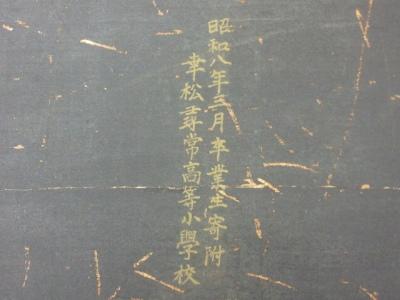 昭和八年三月卒業生寄附
幸松尋常高等小學校